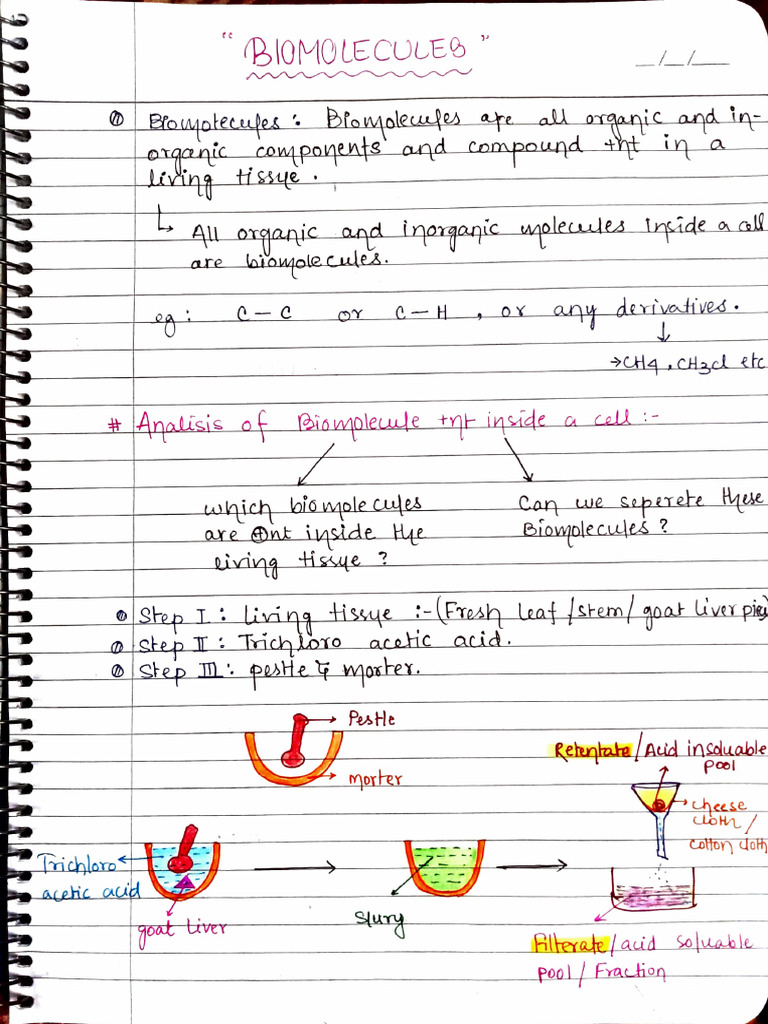 "BIOMOLECULES"
_/_/__
Biomolecules: Biomolecules are all organic and in-
organic components and compound +nt in a
living tissye.
↳ All organic and inorganic molecules inside a cell
are biomolecules.
eg: C-C or C-H, or any derivatives.
→CH4, CH3cl etc
# Analisis of Biomolecule +nt inside a cell:-
which biomolecules
are ⊕nt inside the
living tissye?
Can we seperete these
Biomolecules?
Step I: living tissye :-(Fresh leaf/stem/goat liver piec)
Step II: Trichloro acetic acid.
Step III: pestle & morter.
Pestle
morter
Retentate/Acid insoluable
pool
cheese
cloth/
cotton cloth
Trichloro
acetic acid
goat liver
Slury
Filterate/acid soluable
pool/Fraction